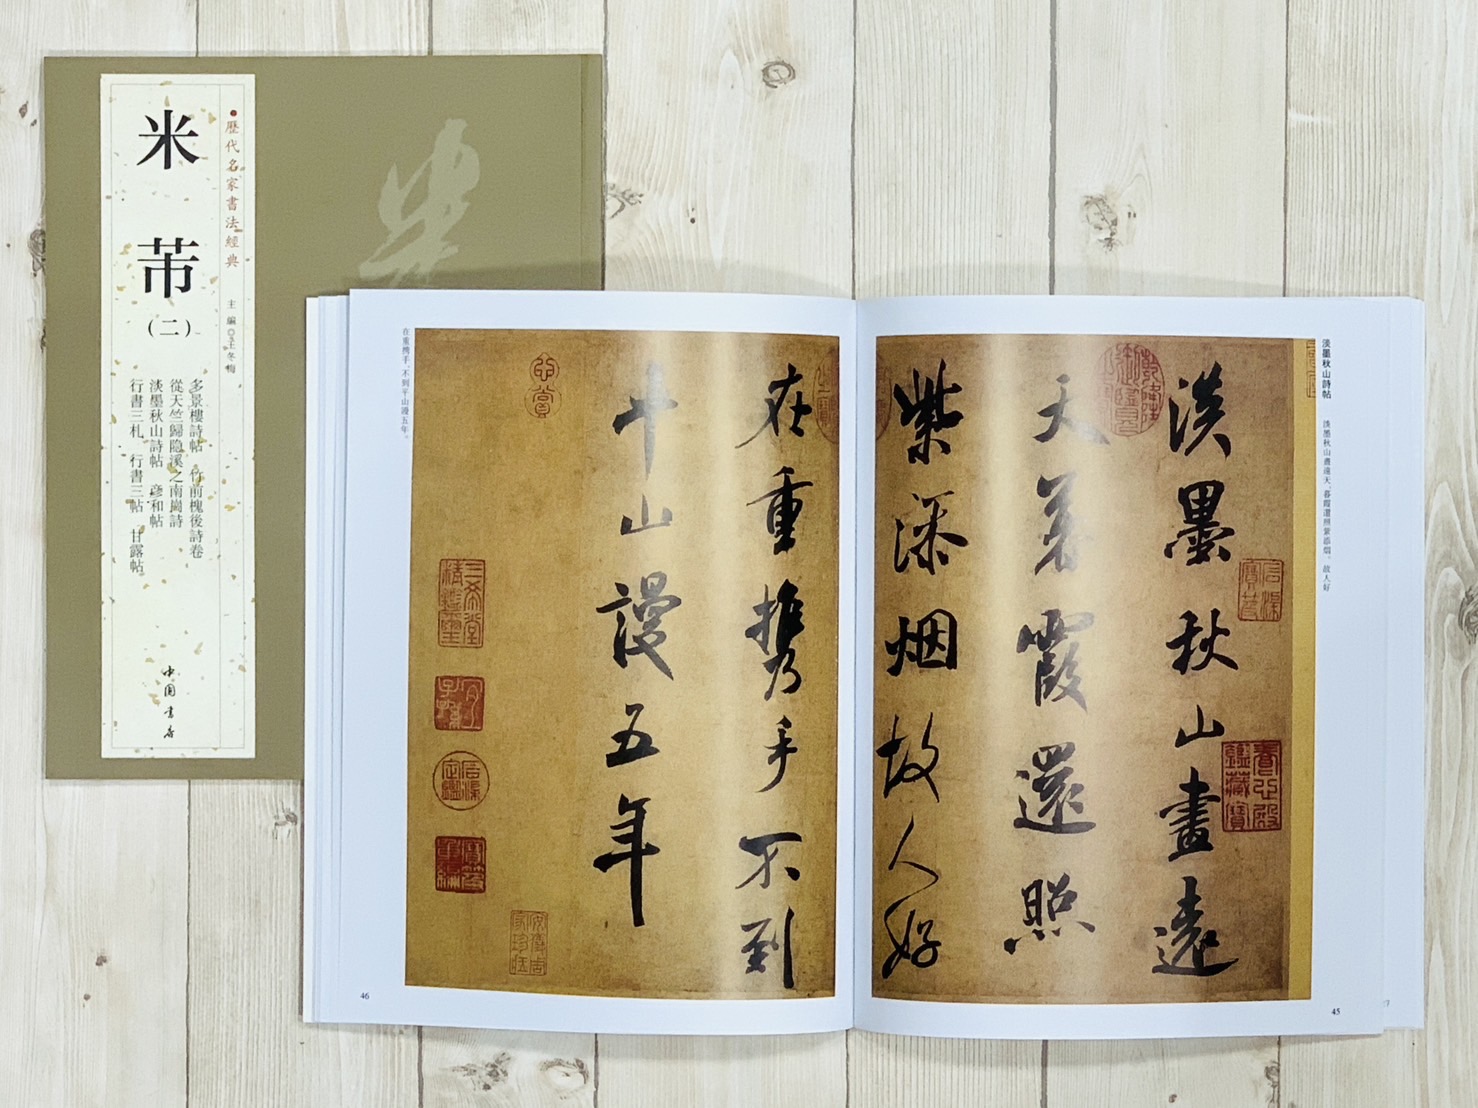 米芾
(二)
歷代名家書法經典
主編○王冬梅
多景樓詩帖 竹前槐後詩卷
從天竺歸隐溪之南崗詩
淡墨秋山詩帖 彦和帖
行書三札 行書三帖 甘露帖
中国书店
淡墨秋山詩帖 淡墨秋山畫遠天，暮霞還照紫添烟。故人好
淡墨秋山畫遠
天暮霞還照
紫添烟故人好
45
在重携手不到
平山謾五年
在重携手，不到平山謾五年。
46